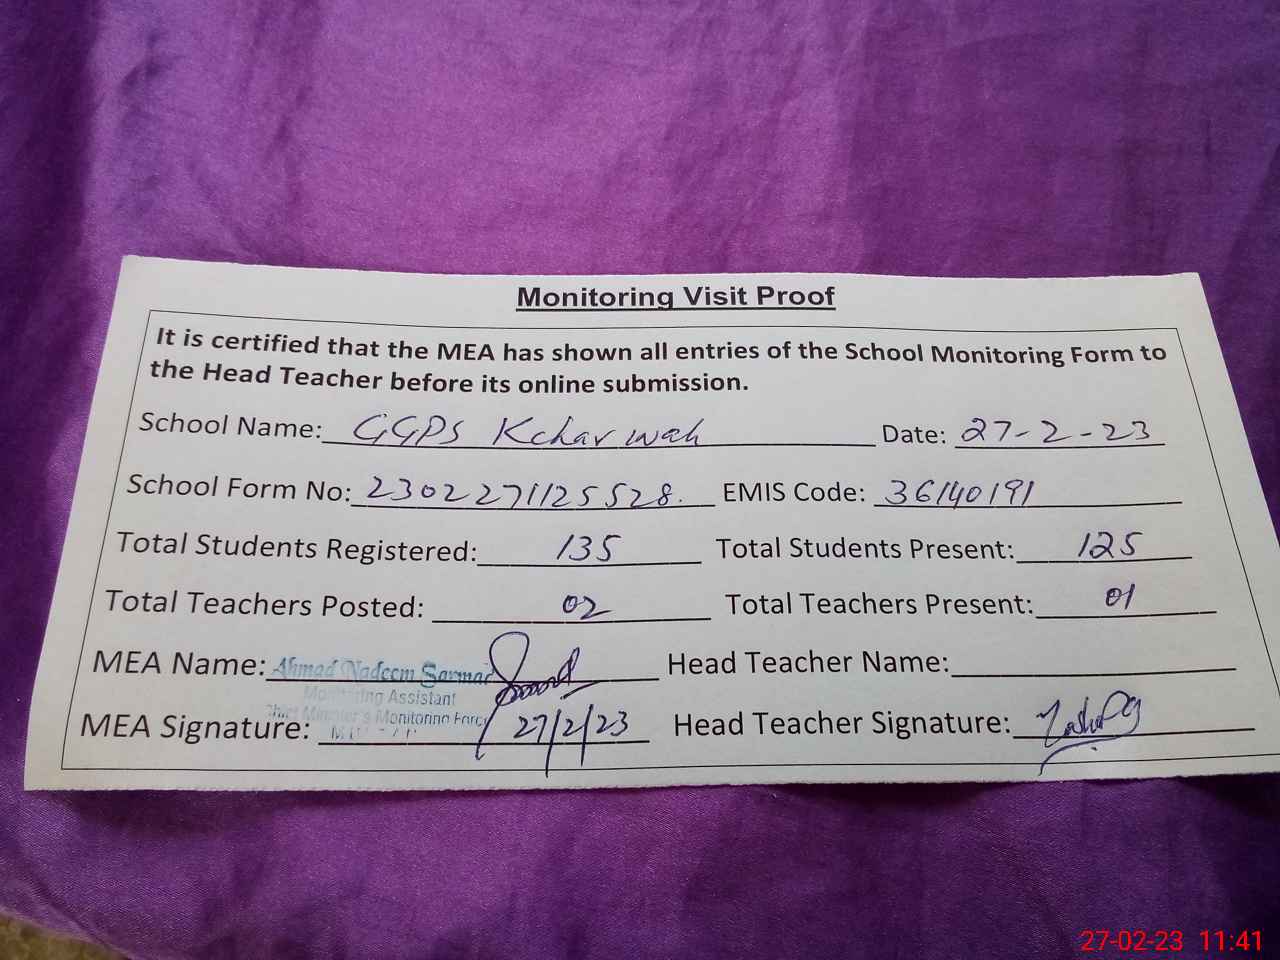 Monitoring Visit Proof
It is certified that the MEA has shown all entries of the School Monitoring Form to
the Head Teacher before its online submission.
School Name: GGPS Kchar wah Date: 27-2-23
School Form No: 2302271125528. EMIS Code: 36140191
Total Students Registered: 135 Total Students Present: 125
Total Teachers Posted: 02 Total Teachers Present: 01
MEA Name: Ahmad Nadeem Sarmad Head Teacher Name:
Monitoring Assistant
Chief Minister's Monitoring Force
MEA Signature: 27/2/23 Head Teacher Signature:
27-02-23 11:41